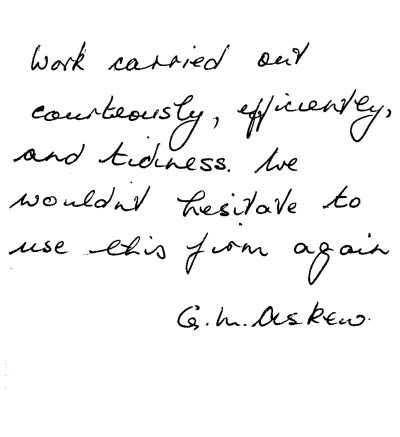 Work carried out
courteously, efficiently,
and tidiness. We
wouldn't hesitate to
use this firm again
G.M. Askew.